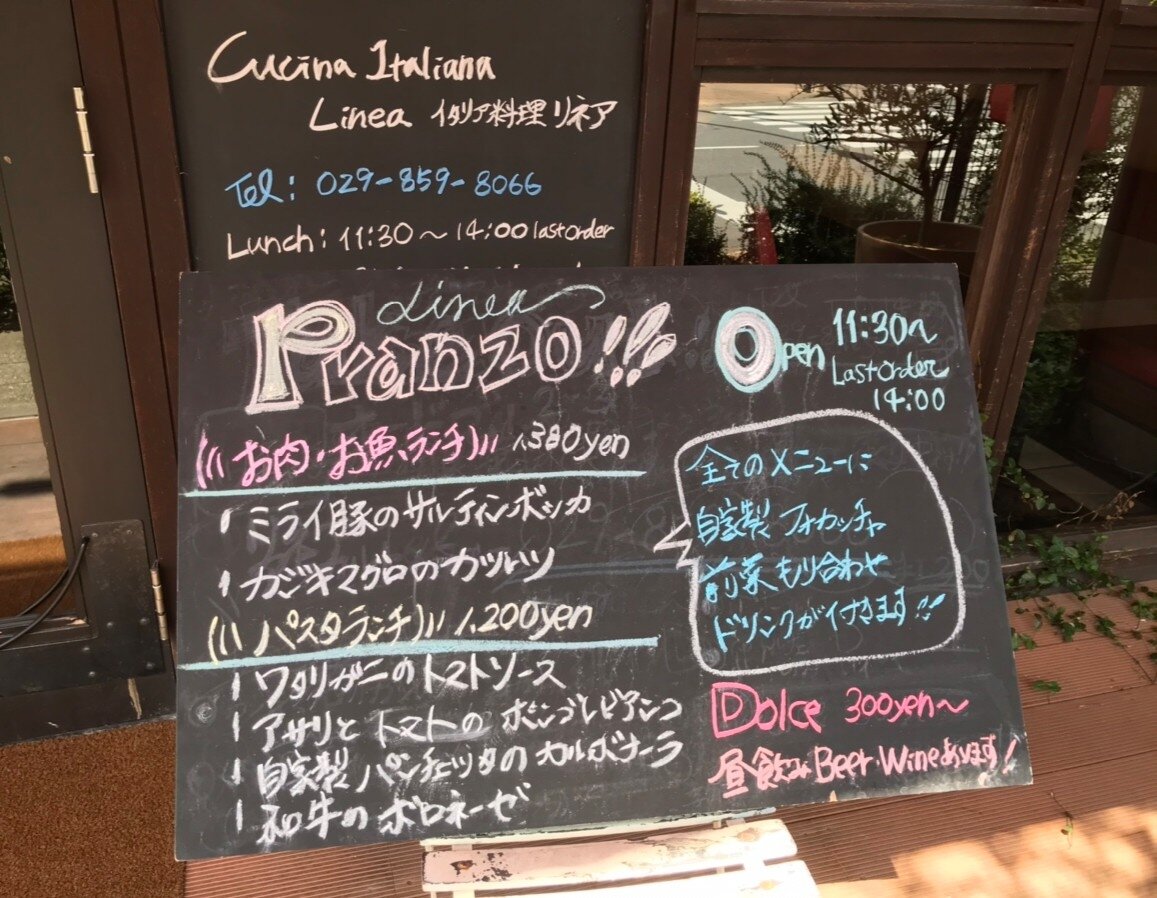 Cucina Italiana
Linea イタリア料理 リネア
Tel: 029-859-8066
Lunch: 11:30〜14:00 last order
Linea
Pranzo!!!
Open 11:30〜
Last order
14:00
お肉・お魚ランチ 1,380yen
ミライ豚のサルティンボッカ
カジキマグロのカツレツ
パスタランチ 1,200yen
ワタリガニのトマトソース
アサリとトマトのボンゴレビアンコ
自家製パンチェッタのカルボナーラ
和牛のボロネーゼ
全てのメニューに
自家製フォカッチャ
前菜もり合わせ
ドリンクが付きます!!
Dolce 300yen〜
昼飲み Beer・Wineあります!